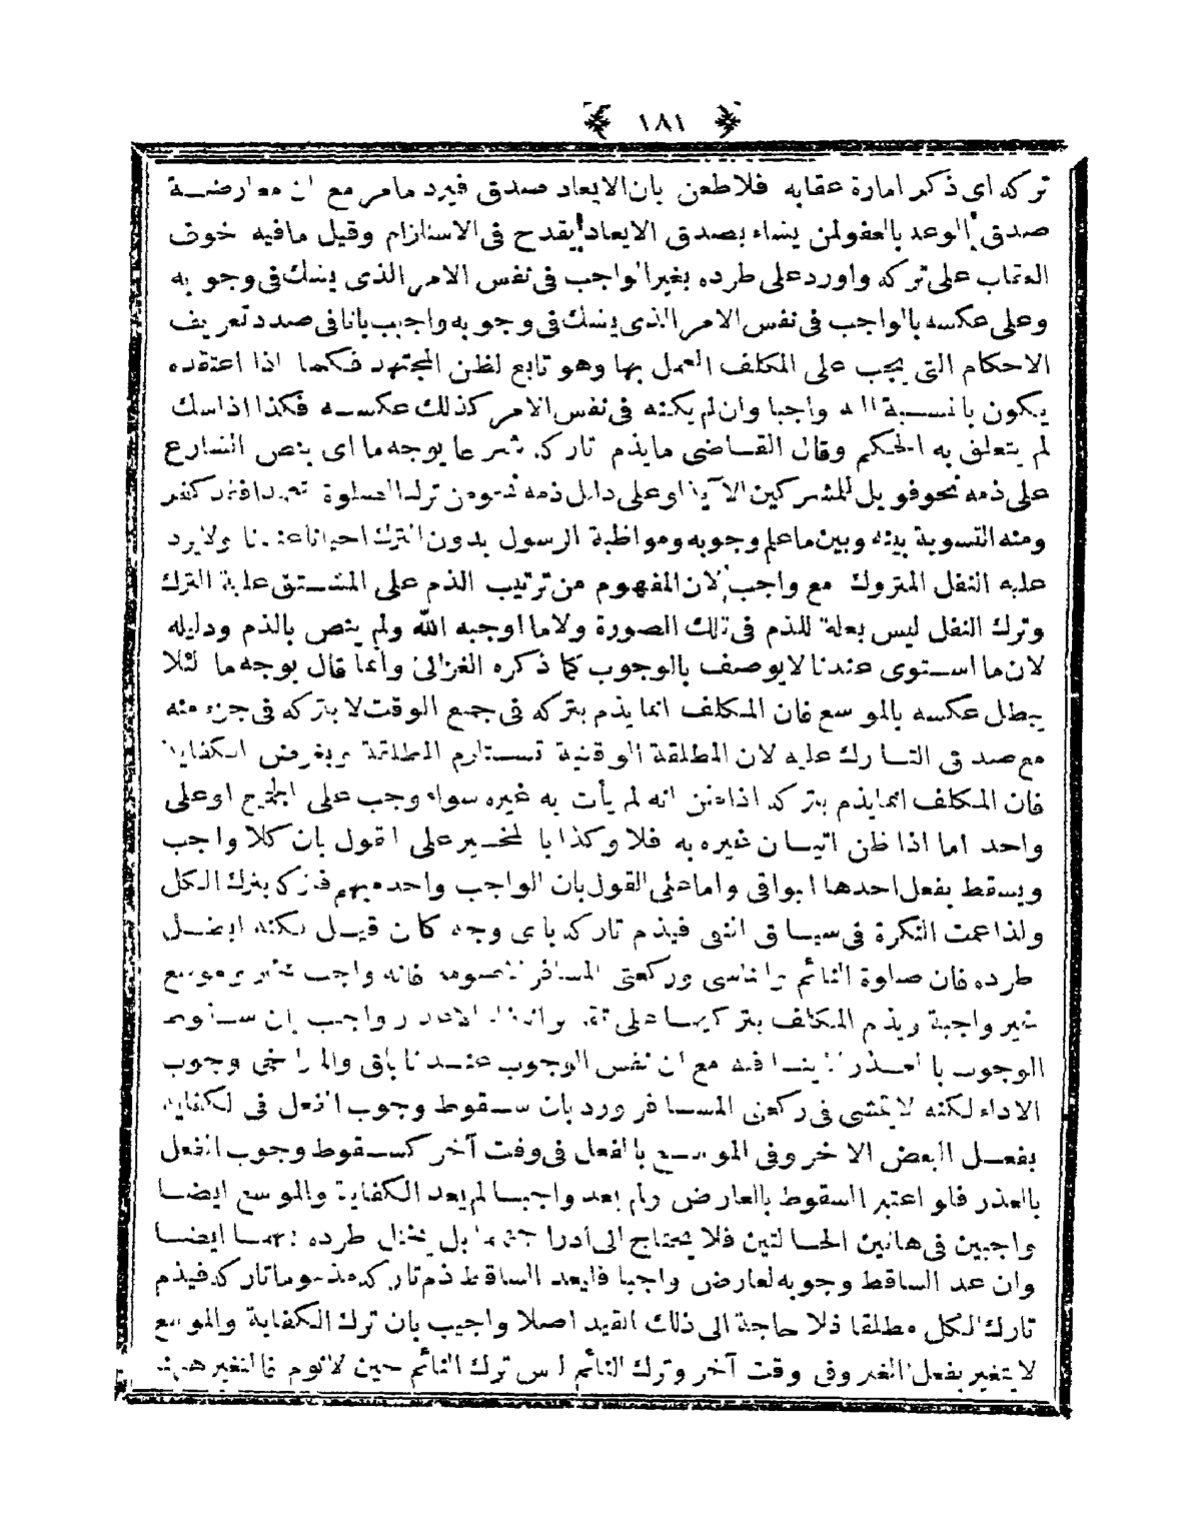 ١٨١
تركه اى ذكر امارة عقابه فلاطعن بان الايعاد صدق فيرد مامر مع ان معارضة
صدق الوعد بالعفولمن يشاء بصدق الايعاد يقدح فى الاستلزام وقيل مافيه خوف
العقاب على تركه واورد على طرده بغير الواجب فى نفس الامر الذى يشك فى وجوبه
وعلى عكسه بالواجب فى نفس الامر الذى يشك فى وجوبه واجيب بانا فى صدد تعريف
الاحكام التى يجب على المكلف العمل بها وهو تابع لظن المجتهد فكما اذا اعتقده
يكون بالنسبة اليه واجبا وان لم يكنه فى نفس الامر كذلك عكسه فكذا اذاشك
لم يتعلق به الحكم وقال القاضى مايذم تاركه شرعا بوجه ما اى بنص الشارع
على ذمه نحو فويل للمشركين الآية او على دليل ذمه نحو من ترك الصلوة فقد كفر
ومنه التسوية بينه وبين ماعلم وجوبه ومواظبة الرسول بدون الترك احيانا عندنا ولايرد
عليه النفل المتروك مع واجب لان المفهوم من ترتيب الذم على المشتق علية الترك
وترك النفل ليس بعلة للذم فى تلك الصورة ولاما اوجبه الله ولم ينص بالذم ودليله
لان ما استوى عندنا لايوصف بالوجوب كما ذكره الغزالى وانما قال بوجه ما لئلا
يبطل عكسه بالموسع فان المكلف انما يذم بتركه فى جميع الوقت لا بتركه فى جزء منه
مع صدق التارك عليه لان المطلقة الوقتية تستلزم المطلقة وبفرض الكفاية
فان المكلف انمايذم بتركه اذاظن انه لم يأت به غيره سواء وجب على الجميع اوعلى
واحد اما اذا ظن اتيان غيره به فلا وكذا بالمخير على القول بان كلا واجب
ويسقط بفعل احدها البواقى واما على القول بان الواجب واحد مبهم فتركه بترك الكل
ولذا عمت النكرة فى سياق النفى فيذم تاركه باى وجه كان قيل لكنه ابطل
طرده فان صلوة النائم والناسى وركعتى المسافر
غير واجبة ويذم المكلف بتركها على
الوجوب بالعذر لا ينافيه مع ان نفس الوجوب عندنا باق والمتراخى وجوب
الاداء لكنه لا يتمشى فى ركعتى المسافر ورد بان سقوط وجوب الفعل فى الكفاية
بفعل البعض الاخر وفى الموسع بالفعل فى وقت آخر كسقوط وجوب الفعل
بالعذر فلو اعتبر السقوط بالعارض ولم يعد واجبا لم يعد الكفاية والموسع ايضا
واجبين فى هاتين الحالتين فلا يحتاج الى ادراجهما بل يختل طرده بهما ايضا
وان عد الساقط وجوبه لعارض واجبا فليعد الساقط ذم تاركه مذموما تاركه فيذم
تارك الكل مطلقا فلا حاجة الى ذلك القيد اصلا واجيب بان ترك الكفاية والموسع
لا يتغير بفعل الغير وفى وقت آخر وترك النائم ليس ترك النائم حين لانوم فالتغير